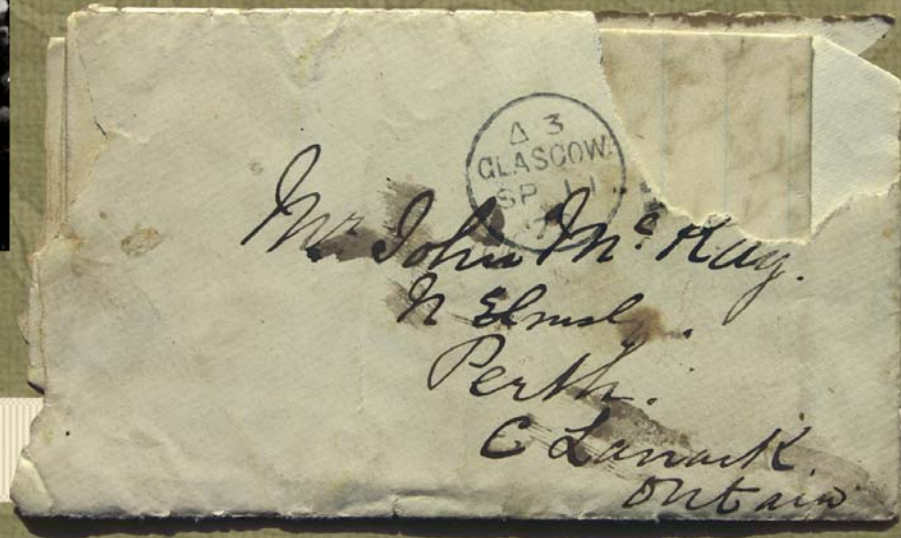 Δ 3
GLASGOW
SP 11
Mr John Mc Kay.
N Elmsly.
Perth.
C Lanark.
Ontario